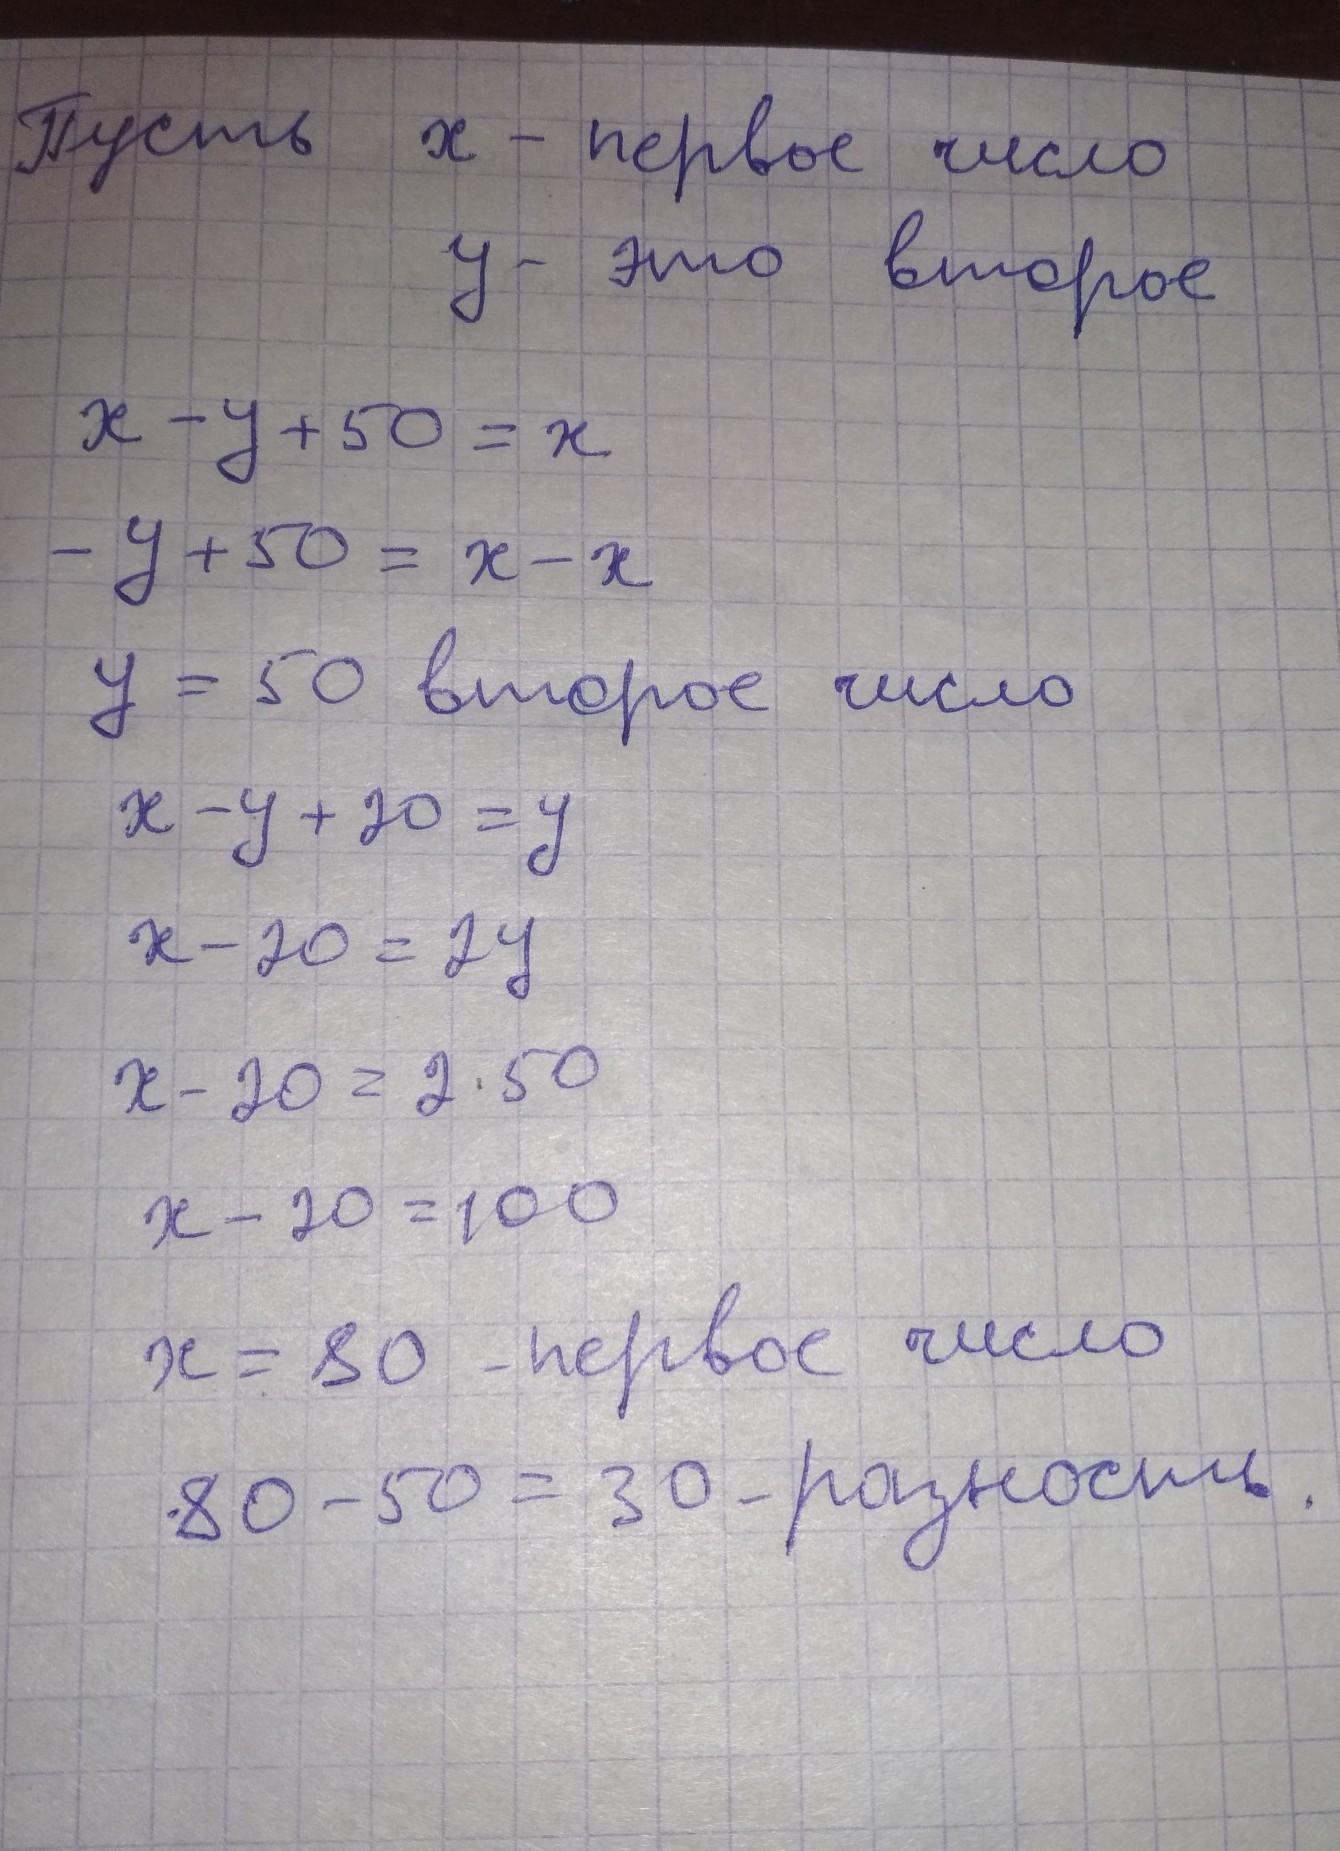 Пусть x - первое число
y - это второе
x - y + 50 = x
- y + 50 = x - x
y = 50 второе число
x - y + 20 = y
x - 20 = 2y
x - 20 = 2 · 50
x - 20 = 100
x = 80 - первое число
80 - 50 = 30 - разность.